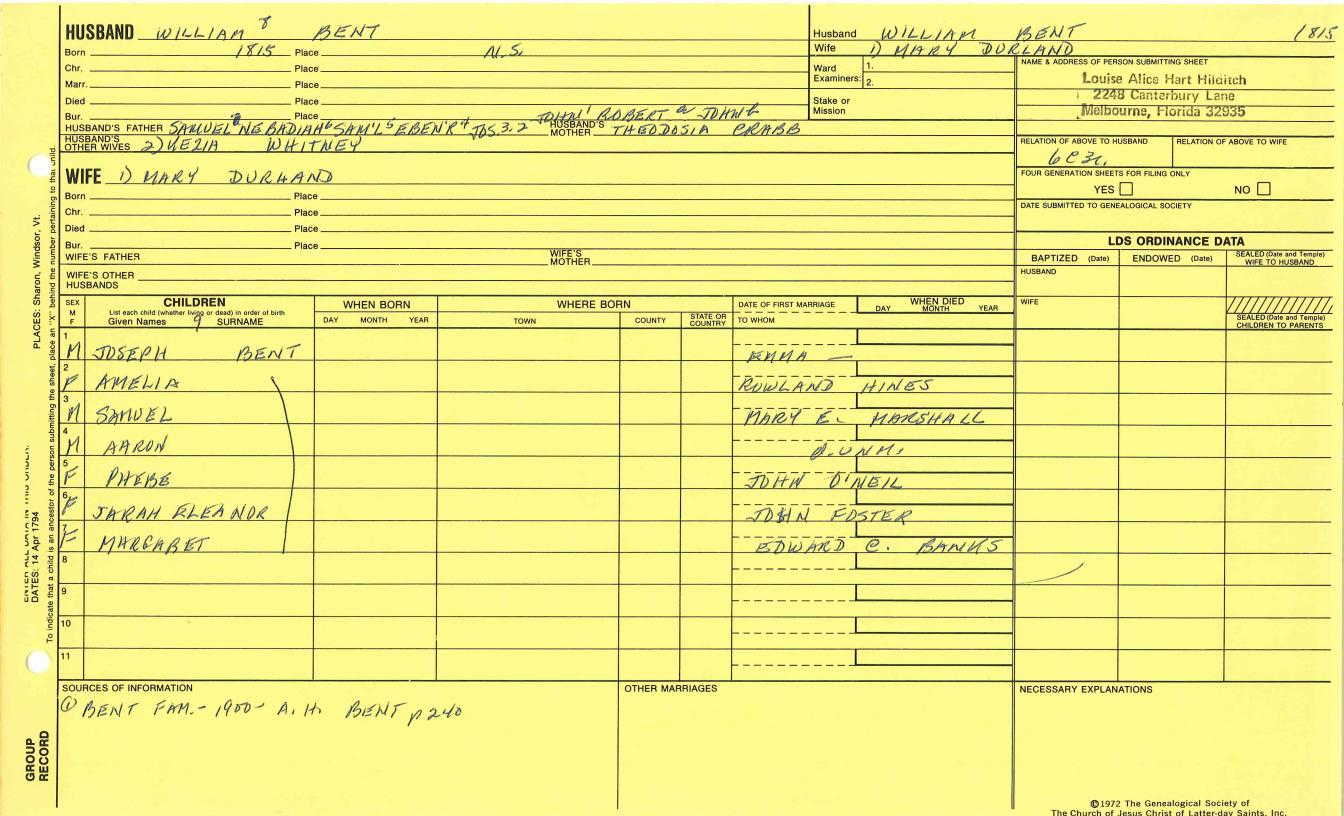 HUSBAND WILLIAM 8 BENT
Born 1815 Place N.S.
Chr. Place
Marr. Place
Died Place
Bur. Place
HUSBAND'S FATHER SAMUEL NEBADIAH6 SAM'L5 EBEN'R4 JOS.3.2 JOHN1 ROBERT JOHN HUSBAND'S MOTHER THEODOSIA CRABB
HUSBAND'S OTHER WIVES 2) WHITNEY
Husband WILLIAM BENT 1815
Wife 1) MARY DURLAND
Ward Examiners: 1.
2.
Stake or Mission
NAME & ADDRESS OF PERSON SUBMITTING SHEET
Louise Alice Hart Hilditch
2248 Canterbury Lane
Melbourne, Florida 32935
RELATION OF ABOVE TO HUSBAND RELATION OF ABOVE TO WIFE
FOUR GENERATION SHEETS FOR FILING ONLY
YES NO
DATE SUBMITTED TO GENEALOGICAL SOCIETY
WIFE 1) MARY DURLAND
Born Place
Chr. Place
Died Place
Bur. Place
WIFE'S FATHER WIFE'S MOTHER
WIFE'S OTHER HUSBANDS
LDS ORDINANCE DATA
BAPTIZED (Date) ENDOWED (Date) SEALED (Date and Temple) WIFE TO HUSBAND
HUSBAND
WIFE
SEALED (Date and Temple) CHILDREN TO PARENTS
SEX M F CHILDREN WHEN BORN WHERE BORN DATE OF FIRST MARRIAGE WHEN DIED
List each child (whether living or dead) in order of birth
Given Names 9 SURNAME DAY MONTH YEAR TOWN COUNTY STATE OR COUNTRY TO WHOM DAY MONTH YEAR
1 M JOSEPH BENT EMMA —
2 F AMELIA ROWLAND HINES
3 M SAMUEL MARY E. MARSHALL
4 M AARON d. UNM.
5 F PHEBE JOHN O'NEIL
6 F SARAH ELEANOR JOHN FOSTER
7 F MARGARET EDWARD C. BANKS
8
9
10
11
SOURCES OF INFORMATION
① BENT FAM. - 1900 - A. H. BENT p 240
OTHER MARRIAGES
NECESSARY EXPLANATIONS
PLACES: Sharon, Windsor, Vt.
DATES: 14 Apr 1794
To indicate that a child is an ancestor of the person submitting the sheet, place an "X" behind the number pertaining to that child.
GROUP RECORD
©1972 The Genealogical Society of
The Church of Jesus Christ of Latter-day Saints, Inc.